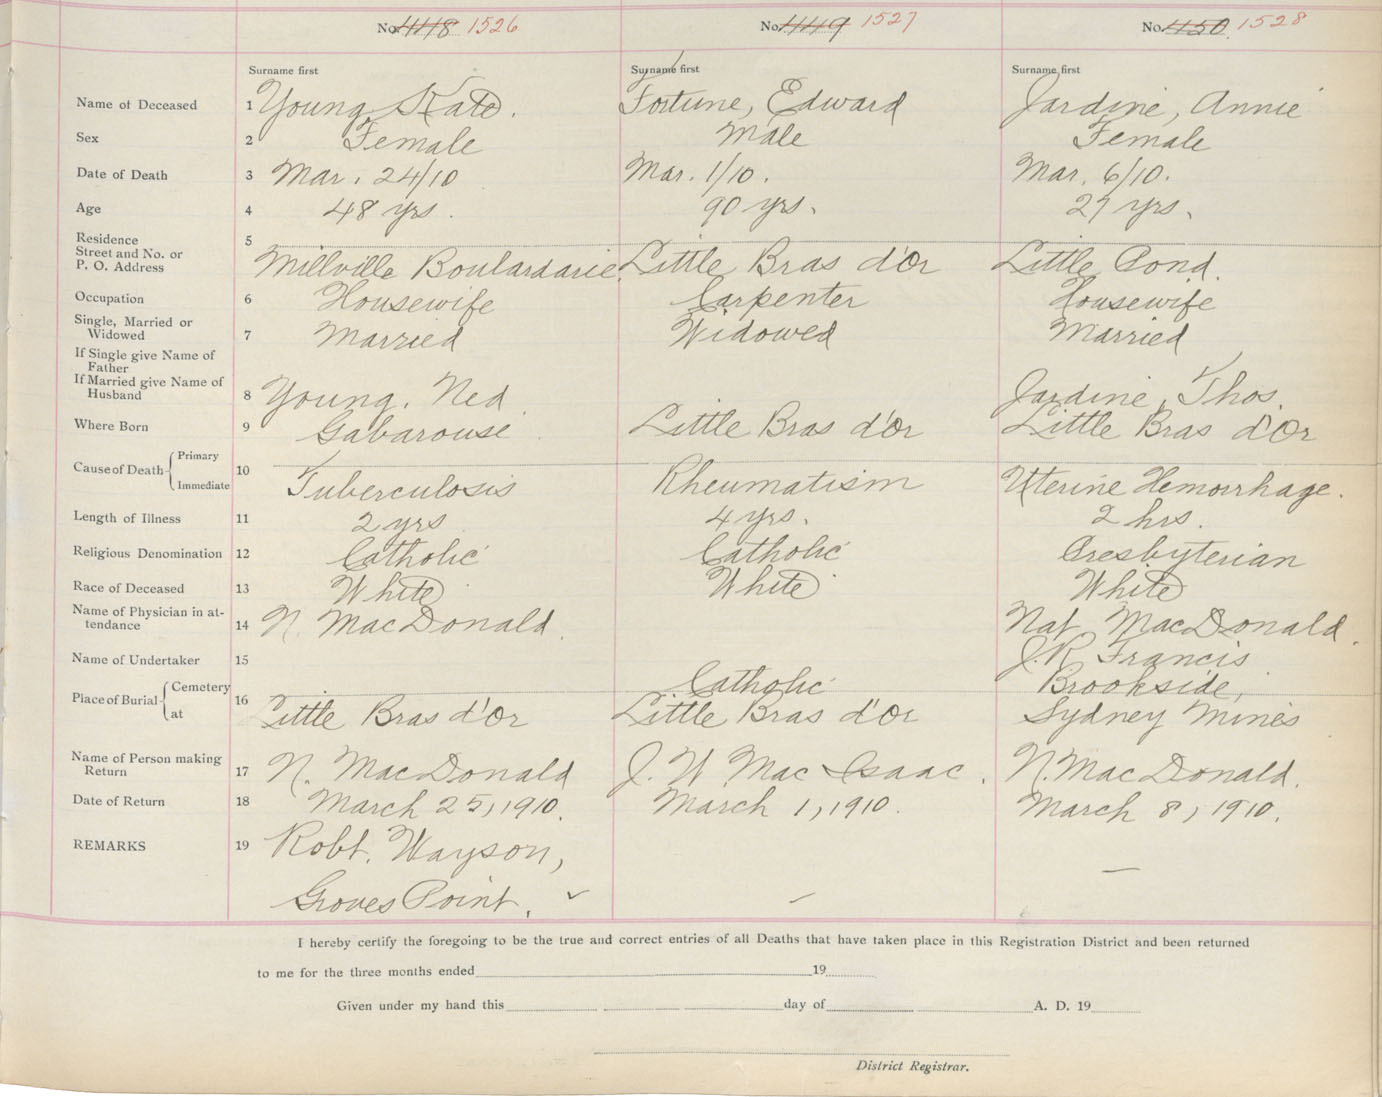 No. 448 1526 No. 449 1527 No. 450 1528
Surname first Surname first Surname first
Name of Deceased 1 Young, Kate. Fortune, Edward Jardine, Annie
Sex 2 Female Male Female
Date of Death 3 Mar. 24/10 Mar. 1/10. Mar. 6/10.
Age 4 48 yrs. 90 yrs. 27 yrs.
Residence 5
Street and No. or
P. O. Address Millville Boulardarie. Little Bras d'Or Little Pond.
Occupation 6 Housewife Carpenter Housewife
Single, Married or
Widowed 7 Married Widowed Married
If Single give Name of
Father
If Married give Name of
Husband 8 Young, Ned. Jardine, Thos.
Where Born 9 Gabarouse Little Bras d'Or Little Bras d'Or
Cause of Death Primary
Immediate 10 Tuberculosis Rheumatism Uterine Hemorrhage.
Length of Illness 11 2 yrs 4 yrs. 2 hrs.
Religious Denomination 12 Catholic Catholic Presbyterian
Race of Deceased 13 White White White
Name of Physician in at-
tendance 14 N. MacDonald. Nat MacDonald.
Name of Undertaker 15 J.R Francis
Place of Burial Cemetery 16 Catholic Brookside,
at Little Bras d'Or Little Bras d'Or Sydney Mines
Name of Person making
Return 17 N. MacDonald J. W Mac Isaac. N. MacDonald.
Date of Return 18 March 25, 1910. March 1, 1910. March 8, 1910.
REMARKS 19 Robt. Wayson,
Groves Point.
I hereby certify the foregoing to be the true and correct entries of all Deaths that have taken place in this Registration District and been returned
to me for the three months ended 19
Given under my hand this day of A. D. 19
District Registrar.